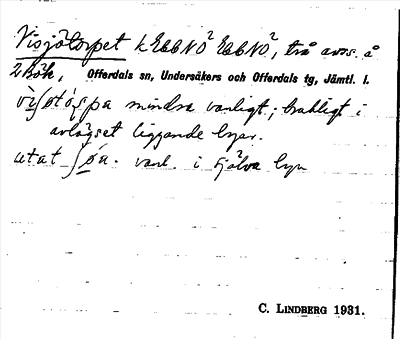 Visjötorpet k EbbNO² EbbNO², två avs. å
2 hök, Offerdals sn, Undersåkers och Offerdals tg, Jämtl. l.
mindre vanligt; brukligt i
avlägset liggande byar.
utat vanl. i själva byn
C. LINDBERG 1931.